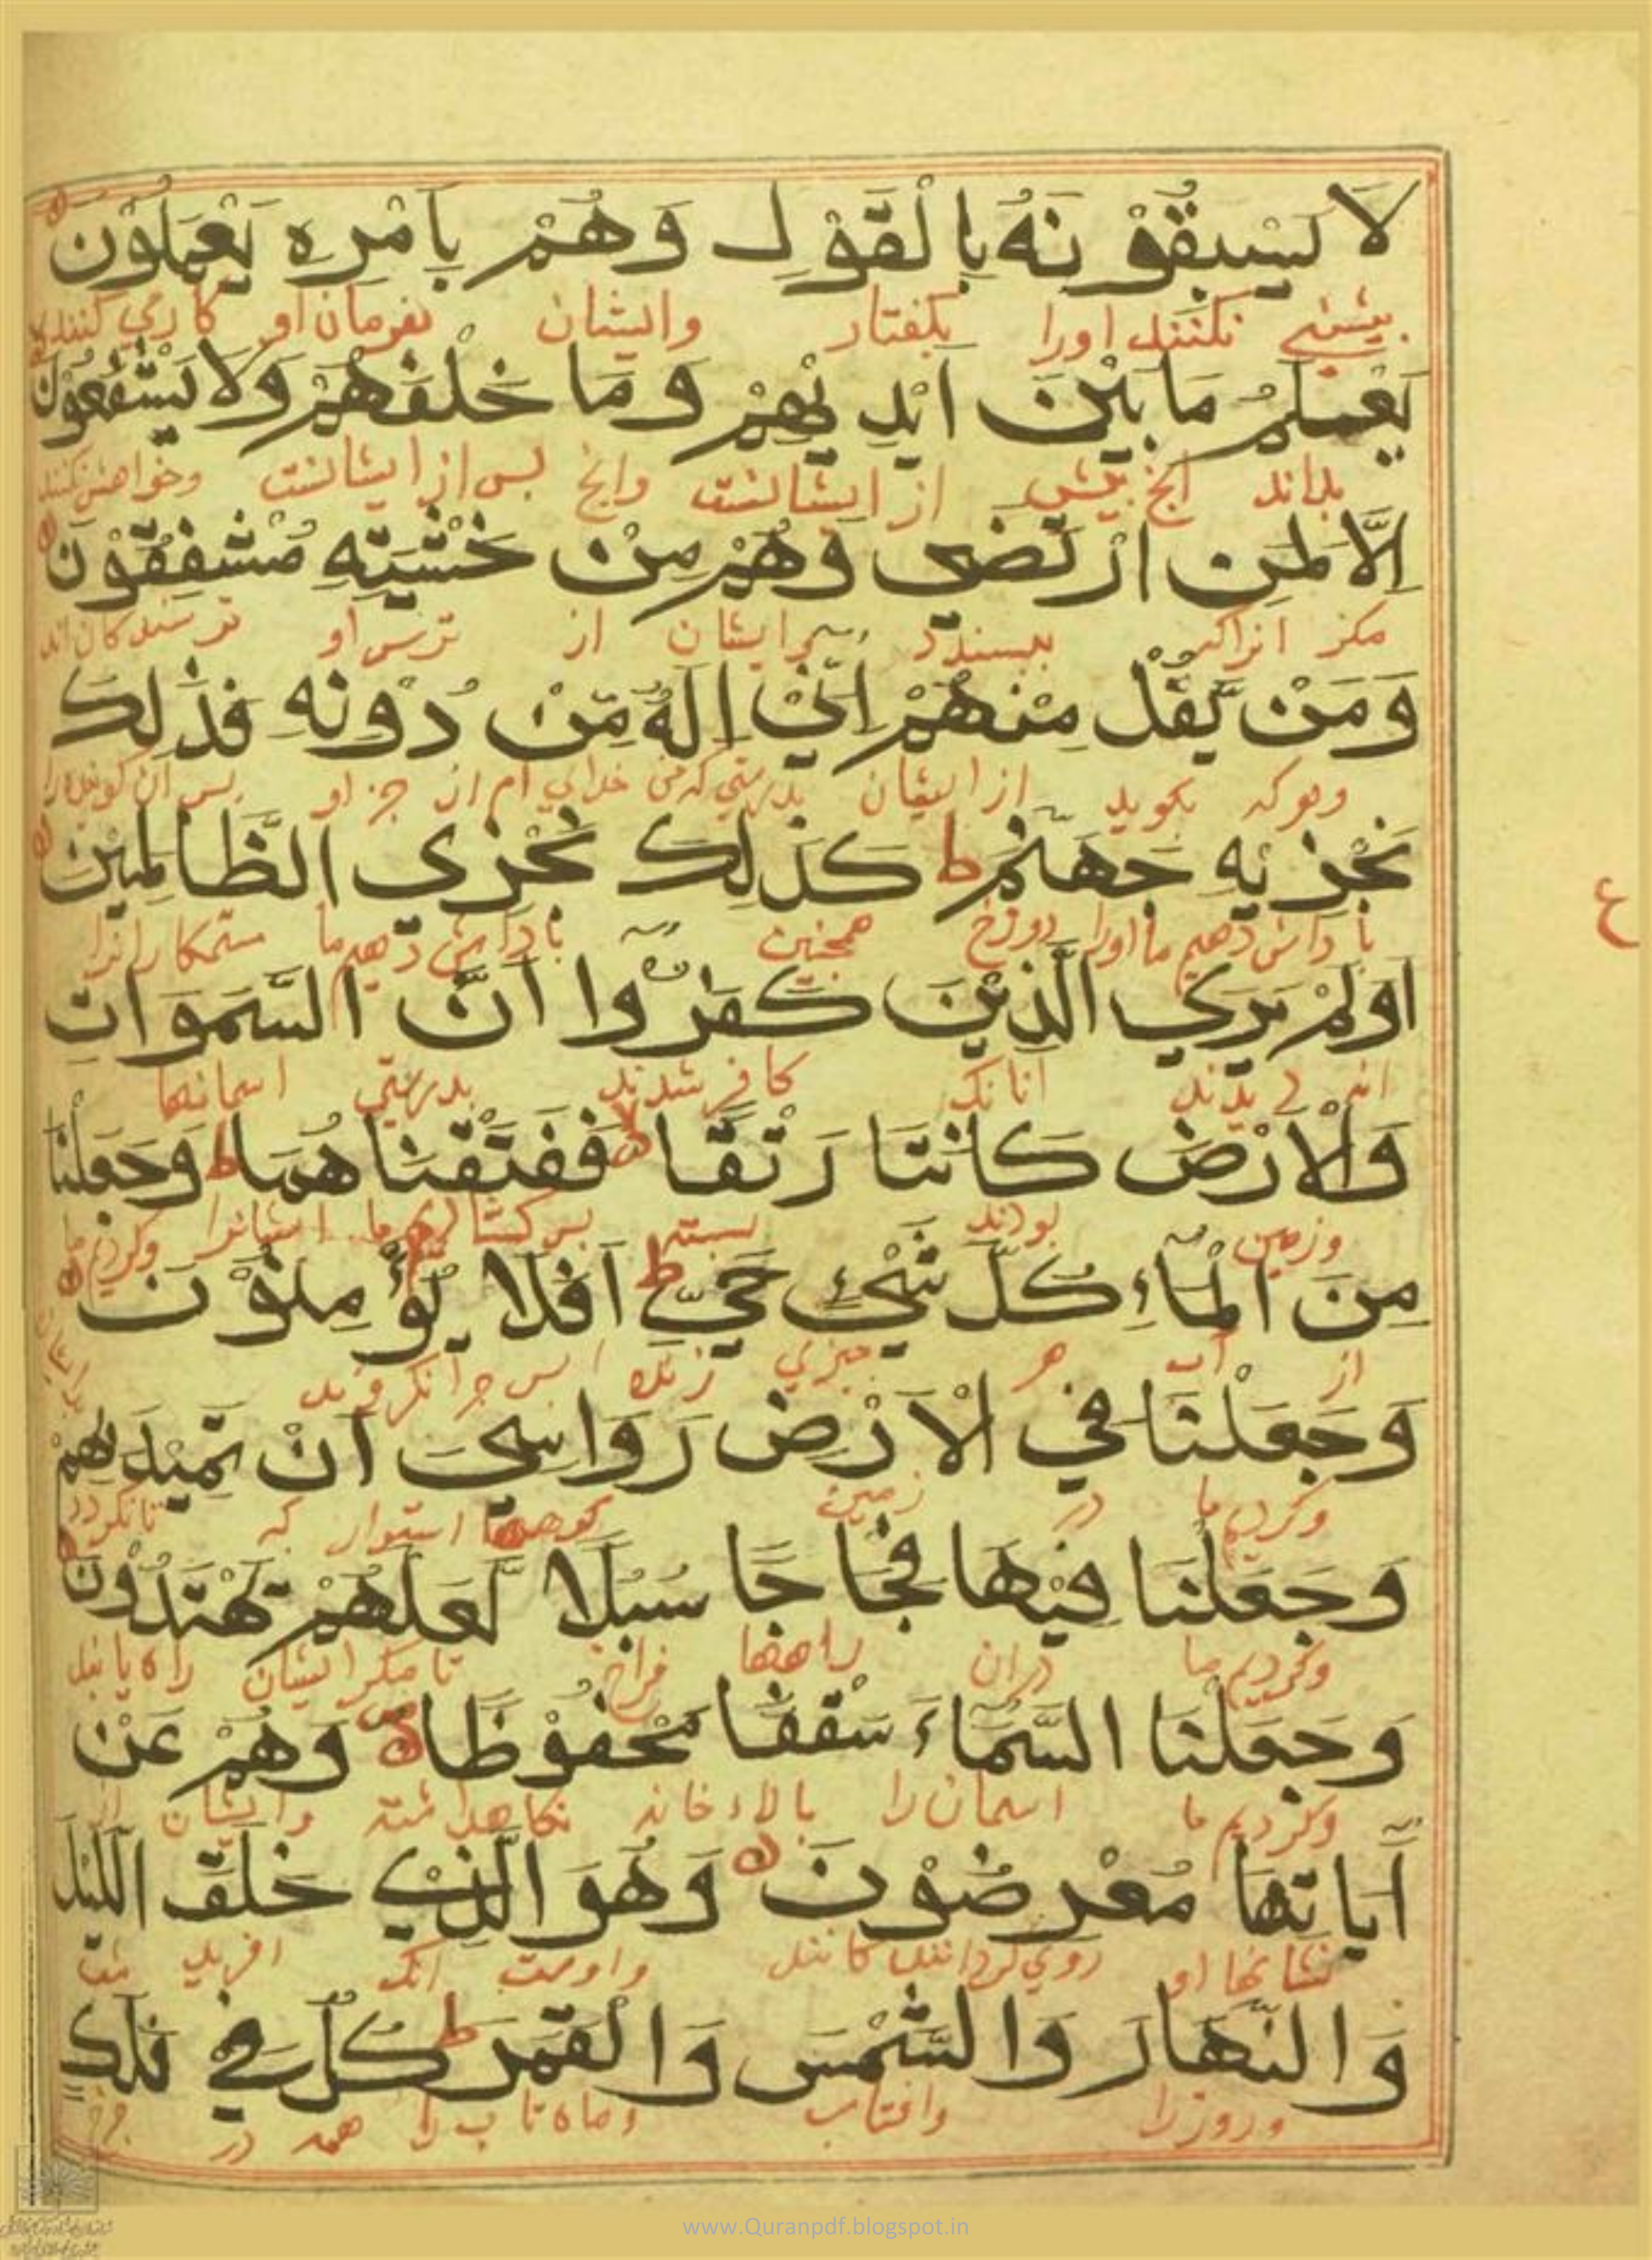 لَا يَسْبِقُوْنَهُ بِالْقَوْلِ وَهُمْ بِاَمْرِهِ يَعْمَلُوْنَ
پیشی نکنند اورا بکفتار وایشان بفرمان او کاری کنند
يَعْلَمُ مَا بَيْنَ اَيْدِيْهِمْ وَمَا خَلْفَهُمْ وَلَا يَشْفَعُوْنَ
بداند انچ پیش از ایشانست وانچ پس از ایشانست وخواهش نکنند
اِلَّا لِمَنِ ارْتَضٰى وَهُمْ مِنْ خَشْيَتِهِ مُشْفِقُوْنَ
مکر انراکه بپسندد ایشان از ترس او ترسندکان اند
وَمَنْ يَّقُلْ مِنْهُمْ اِنِّيْ اِلٰهٌ مِّنْ دُوْنِهِ فَذٰلِكَ
وهرکه بکوید از ایشان بدرستی که من خدایی ام از جز او پس ان کوینده را
نَجْزِيْهِ جَهَنَّمَ ط كَذٰلِكَ نَجْزِي الظَّالِمِيْنَ
پاداش دهیم ما اورا دوزخ همچنین پاداش دهیم ما ستمکارانرا
ع
اَوَلَمْ يَرَي الَّذِيْنَ كَفَرُوْا اَنَّ السَّمَوَاتِ
انانک کافر شدند بدرستی اسمانها
وَالْاَرْضَ كَانَتَا رَتْقًا فَفَتَقْنَاهُمَا ط وَجَعَلْنَا
وزمین بودند بسته پس کشادیم ما ایشانرا وکردیم ما
مِنَ الْمَاءِ كُلَّ شَيْءٍ حَيٍّ ط اَفَلَا يُؤْمِنُوْنَ
از آب هر چیزی زنده پس چرا نکروند
وَجَعَلْنَا فِي الْاَرْضِ رَوَاسِيَ اَنْ تَمِيْدَ بِهِمْ
وکردیم ما در زمین کوهها استوار که تا نکردد
وَجَعَلْنَا فِيْهَا فِجَاجًا سُبُلًا لَعَلَّهُمْ يَهْتَدُوْنَ
وکردیم ما دران راهها فراخ تا مکر ایشان راه یابند
وَجَعَلْنَا السَّمَاءَ سَقْفًا مَحْفُوْظًا وَهُمْ عَنْ
وکردیم ما اسمان را بالاء خانه نکاهداشته وایشان از
اٰيَاتِهَا مُعْرِضُوْنَ وَهُوَ الَّذِيْ خَلَقَ اللَّيْلَ
نشانها او روی کردانندکانند واوست انک افرید شب
وَالنَّهَارَ وَالشَّمْسَ وَالْقَمَرَ ط كُلٌّ فِي فَلَكٍ
وروز را وافتاب وماه تاب را همه در چرخ
www.Quranpdf.blogspot.in